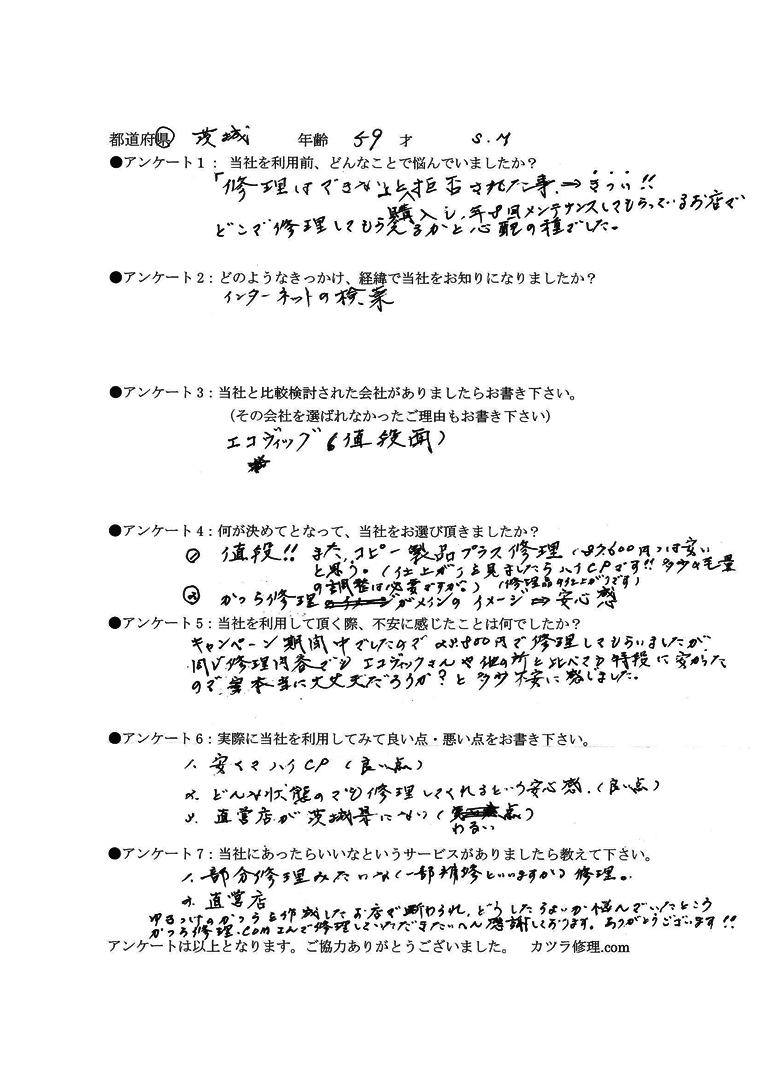 都道府県 茨城 年齢 59 才 S.M
●アンケート1： 当社を利用前、どんなことで悩んでいましたか？
「修理はできないと拒否された事 → きつい!!
購入し、年8回メンテナンスしてもらっているお店で
どこで修理してもらえるかと心配の種でした。
●アンケート2：どのようなきっかけ、経緯で当社をお知りになりましたか？
インターネットの検索
●アンケート3：当社と比較検討された会社がありましたらお書き下さい。
（その会社を選ばれなかったご理由もお書き下さい）
エコヴィッグ（値段面）
●アンケート4：何が決めてとなって、当社をお選び頂きましたか？
① 値段!! また、コピー製品プラス修理（87.600円）は安い
と思う。（仕上がりを見ましたらハイCPです!! 多少の毛量
の調整は必要ですが。）（修理品の仕上がりです）
② かつら修理がメインのイメージ ⇒ 安心感
●アンケート5：当社を利用して頂く際、不安に感じたことは何でしたか？
キャンペーン期間中でしたので 28.800円で修理してもらいましたが
同じ修理内容でも エコヴィックさんや他の所と比べても特段に安かった
ので 本当に大丈夫だろうか？と多少不安に感じました。
●アンケート6：実際に当社を利用してみて良い点・悪い点をお書き下さい。
1. 安くてハイCP（良い点）
2. どんな状態のでも修理してくれるという安心感.（良い点）
3. 直営店が茨城県にない（わるい点）
●アンケート7：当社にあったらいいなというサービスがありましたら教えて下さい。
1. 部分修理みたいな（一部補修といいますか）修理。
2. 直営店
ゆるつけのかつらを作成したお店で断わられ、どうしたらよいか悩んでいたところ
かつら修理.comさんで修理していただきたいへん感謝しております。ありがとうございます!!
アンケートは以上となります。ご協力ありがとうございました。 カツラ修理.com